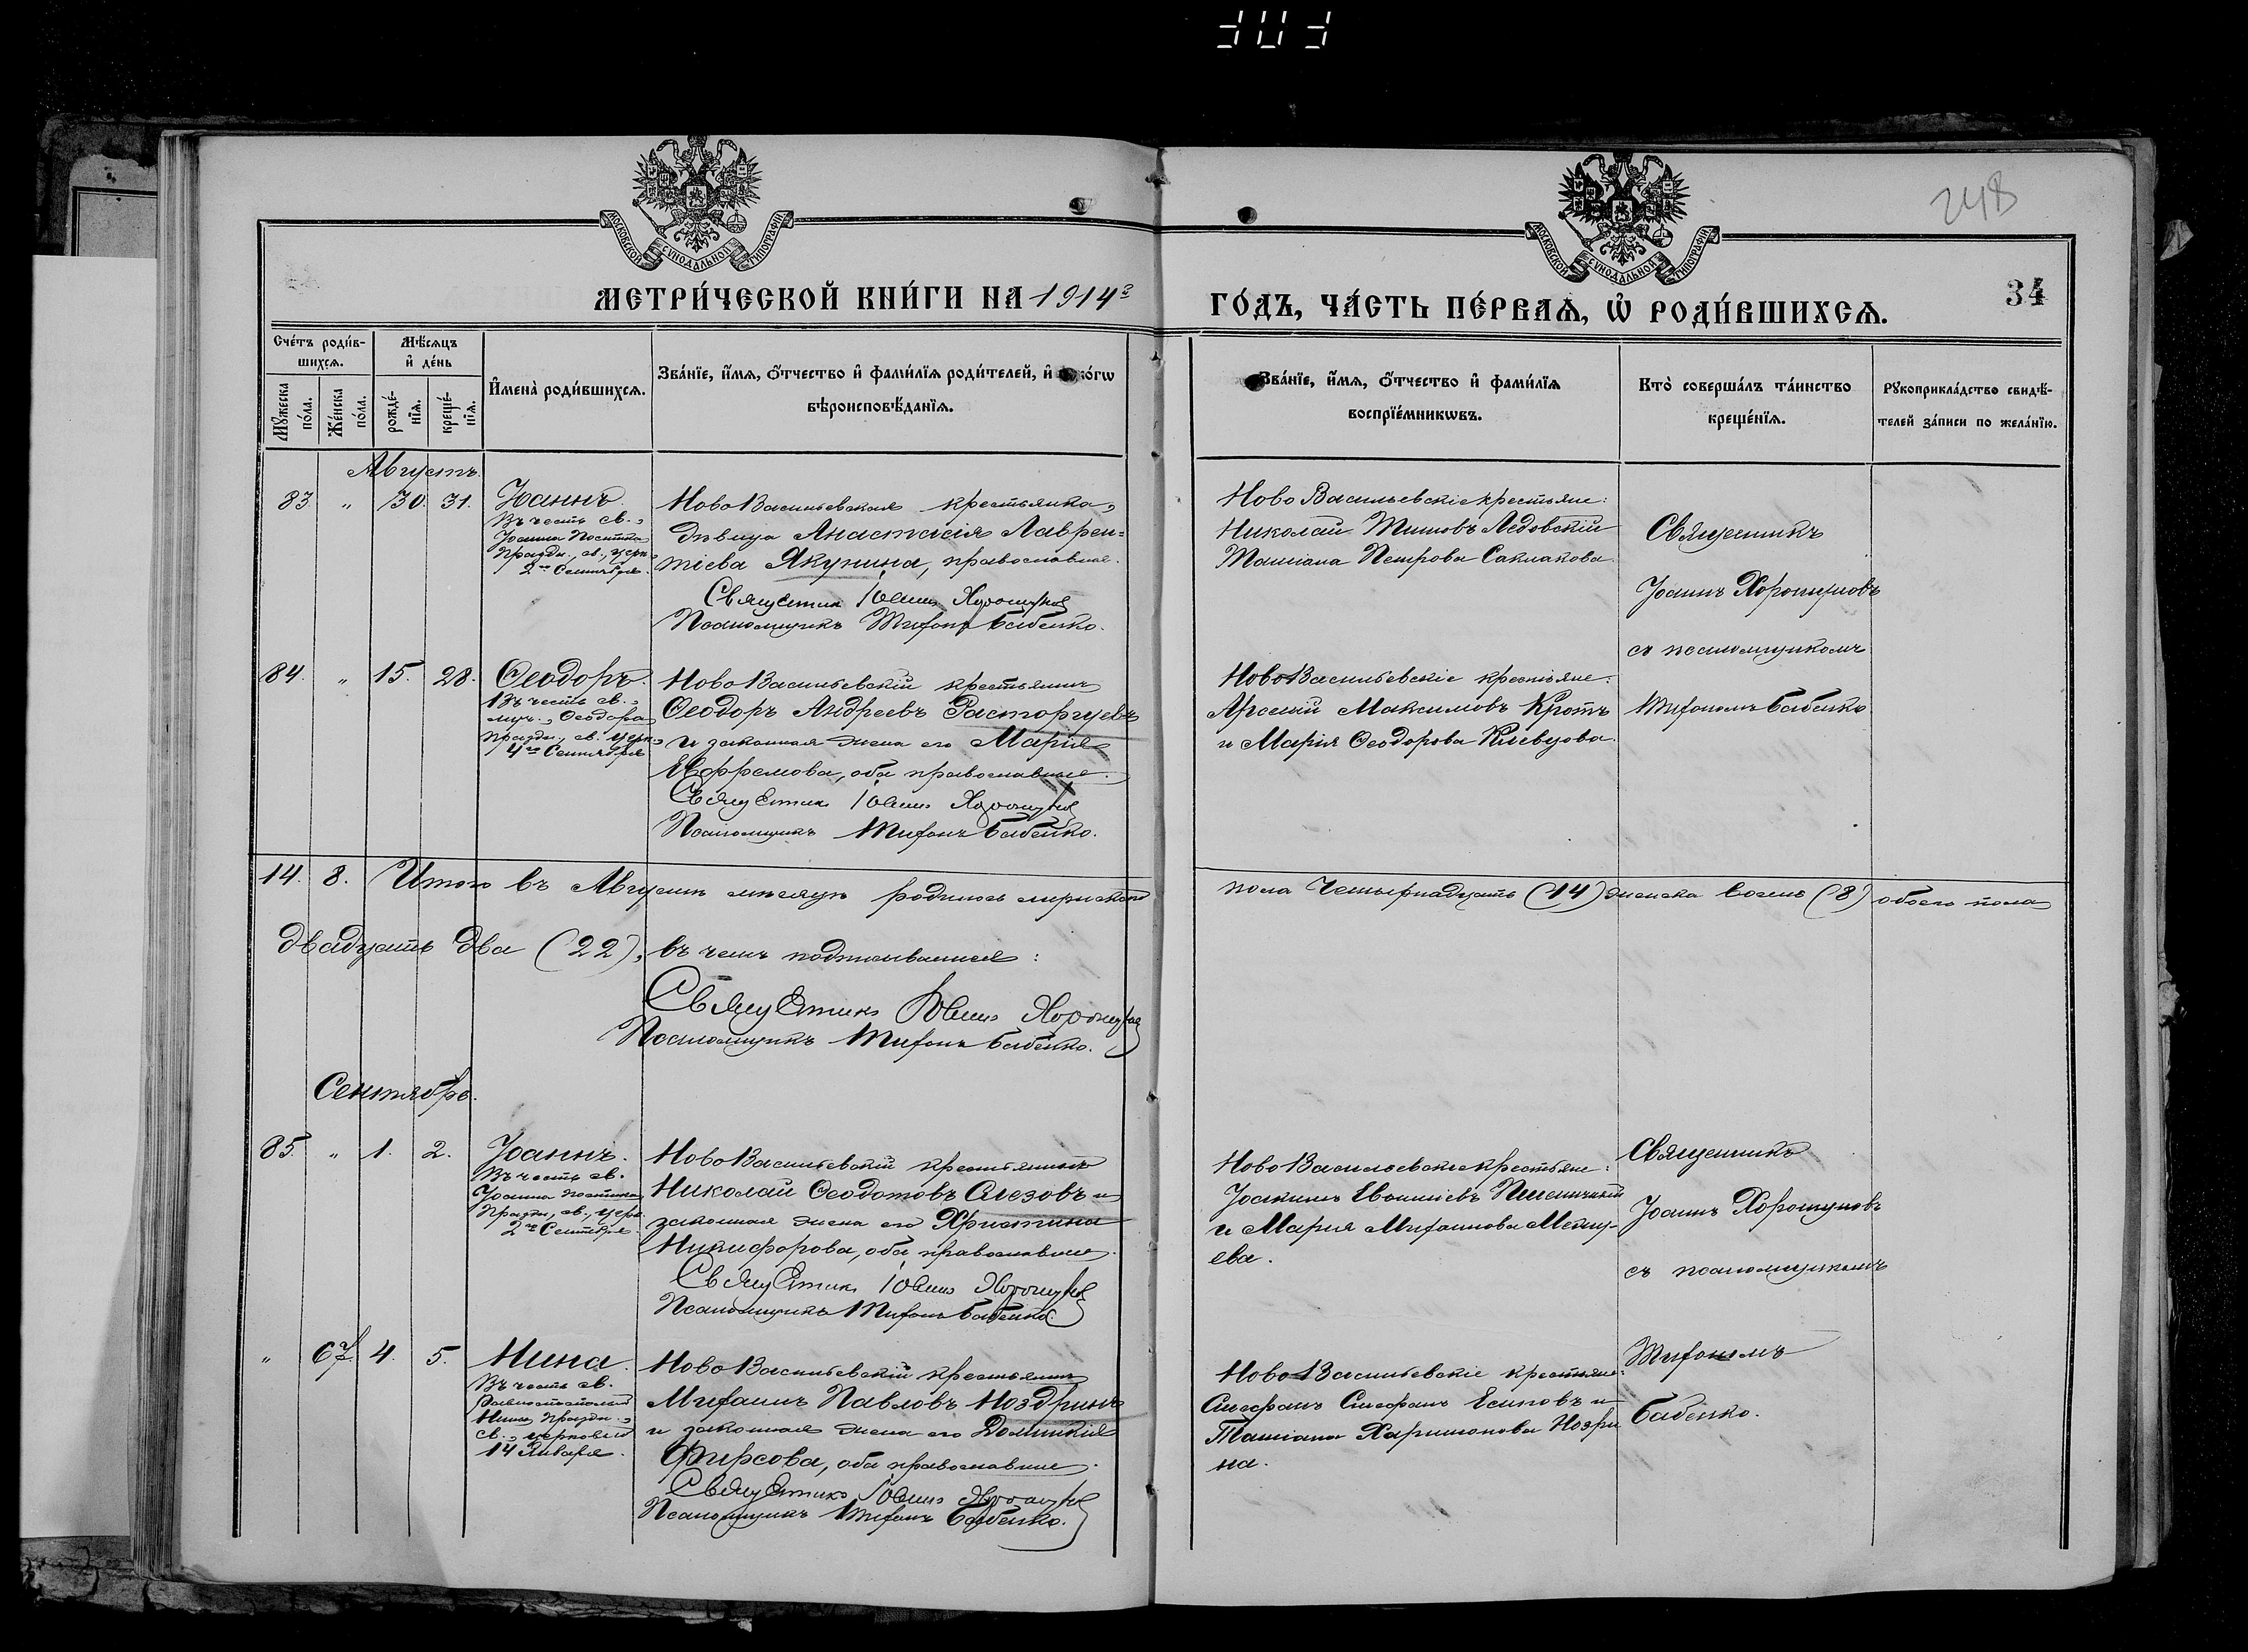 303
248
МОСКОВСКОЙ СѴНОДАЛЬНОЙ ТИПОГРАФІИ
МОСКОВСКОЙ СѴНОДАЛЬНОЙ ТИПОГРАФІИ
МЕТРИ́ЧЕСКОЙ КНИ́ГИ НА 1914 г
ГО́ДЪ, ЧА́СТЬ ПЕ́РВАѦ, Ѡ҆ РОДИ́ВШИХСѦ.
34
Сче́тъ роди́в-
шихсѧ.
Мѣ́сѧцъ
и҆ де́нь
Мꙋ́жеска
по́ла.
Же́нска
по́ла.
рожде́-
нїѧ.
креще́-
нїѧ.
И҆мена̀ роди́вшихсѧ.
Зва́нїе, и҆́мѧ, ѻ҆́тчество и҆ фами́лїѧ роди́телей, и҆
вѣроисповѣ́данїѧ.
Зва́нїе, и҆́мѧ, ѻ҆́тчество и҆ фами́лїѧ
воспрїе́мникѡвъ.
Кто̀ соверша́лъ та́инство
креще́нїѧ.
Рꙋкоприкла́дство свидѣ́-
телей за́писи по жела́нїю.
Августъ.
83. " 30. 31. Іоаннъ
Въ честь св.,
Іоанна Постника
праздн., св., церк.
2го Сентября.
НовоВасильевская крестьянка,
дѣвица Анастасія Лаврен=
тіева Якунина, православная.
Священникъ Іоаннъ Хорошуновъ
Псаломщикъ Тифонъ Бабенко.
НовоВасильевскіе крестьяне:
Николай Титовъ Ледовскій
Татіана Петрова Саклакова.
Священникъ
Іоаннъ Хорошуновъ
съ псаломщикомъ
Тифономъ Бабенко
84. " 15. 28. Ѳеодоръ.
Въ честь св.,
муч., Ѳеодора,
праздн., св. церк.,
4го Сентября
НовоВасильевскій крестьянинъ
Ѳеодоръ Андреевъ Расторгуевъ
и законная жена его Марія
Ефремова, оба православные.
Священникъ Іоаннъ Хорошуновъ
Псаломщикъ Тифонъ Бабенко.
НовоВасильевскіе крестьяне:
Арсеній Максимовъ Кротъ
и Марія Ѳеодорова Клевцова.
14. 8. Итого въ Августѣ мѣсяцѣ родилось мужскаго
пола Четырнадцать (14) женска восемь (8) обоего пола
двадцать два (22), въ чемъ подписываемся:
Священникъ Іоаннъ Хорошуновъ
Псаломщикъ Тифонъ Бабенко.
Сентябрь.
85. " 1. 2. Іоаннъ.
Въ честь св.
Іоанна Постника,
праздн., св., церк.
2го Сентября.
НовоВасильевскій крестьянинъ
Николай Ѳеодотовъ Слезовъ и
законная жена его Христина
Никифорова, оба православные.
Священникъ Іоаннъ Хорошуновъ
Псаломщикъ Тифонъ Бабенко.
НовоВасильевскіе крестьяне:
Іоакимъ
и Марія
ева.
Священникъ
Іоаннъ Хорошуновъ
съ псаломщикомъ
Тифономъ
Бабенко.
" 67. 4. 5. Нина.
Въ честь св.
Равноапостольной
Нины, праздн.,
св., церковью
14 Января.
НовоВасильевскій крестьянинъ
Павловъ Ноздринъ
и законная жена его Домникія
Фирсова, оба православные.
Священникъ Іоаннъ Хорошуновъ
Псаломщикъ Тифонъ Бабенко.
НовоВасильевскіе крестьяне:
Стефанъ Стефанъ Есиповъ и
Татіана Харитонова Нозри
на.